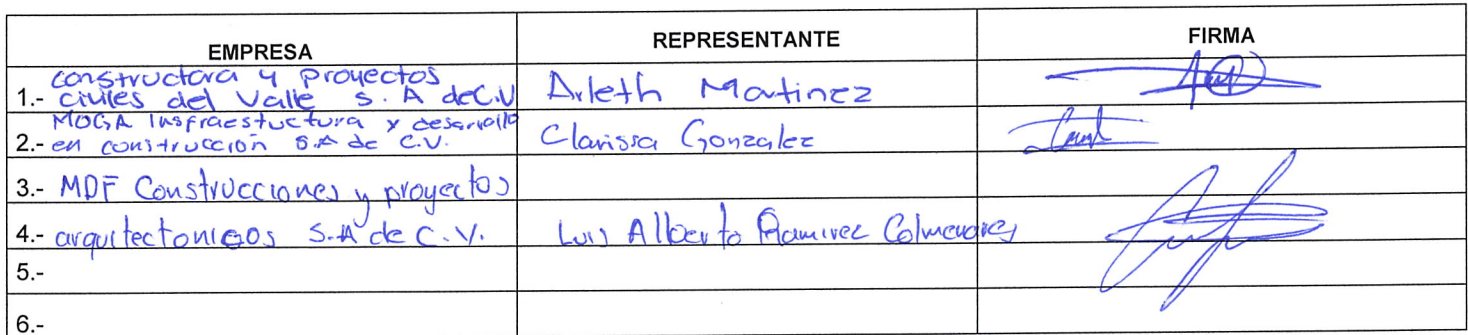 EMPRESA REPRESENTANTE FIRMA
constructora y proyectos
1.- civiles del Valle S.A de C.V Arleth Martinez
MOGA Insfraestuctura y desarrollo
2.- en construcción S.A de C.V. Clarissa Gonzalez
3.- MDF Construcciones y proyectos
4.- arquitectonicos S.A de C.V. Luis Alberto Ramirez Colmenares
5.-
6.-